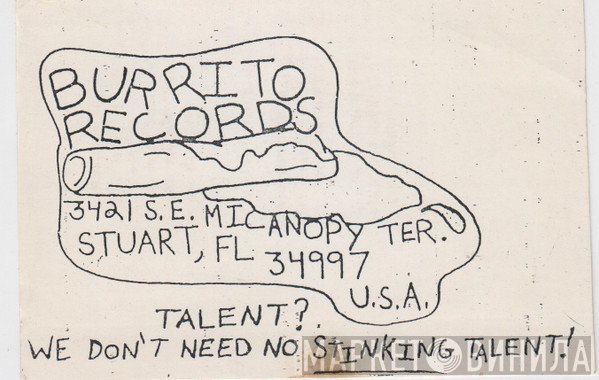 BURRITO
RECORDS
3421 S.E. MICANOPY TER.
STUART, FL 34997
U.S.A.
TALENT?
WE DON'T NEED NO STINKING TALENT!
МАРКЕТ ВИНИЛА